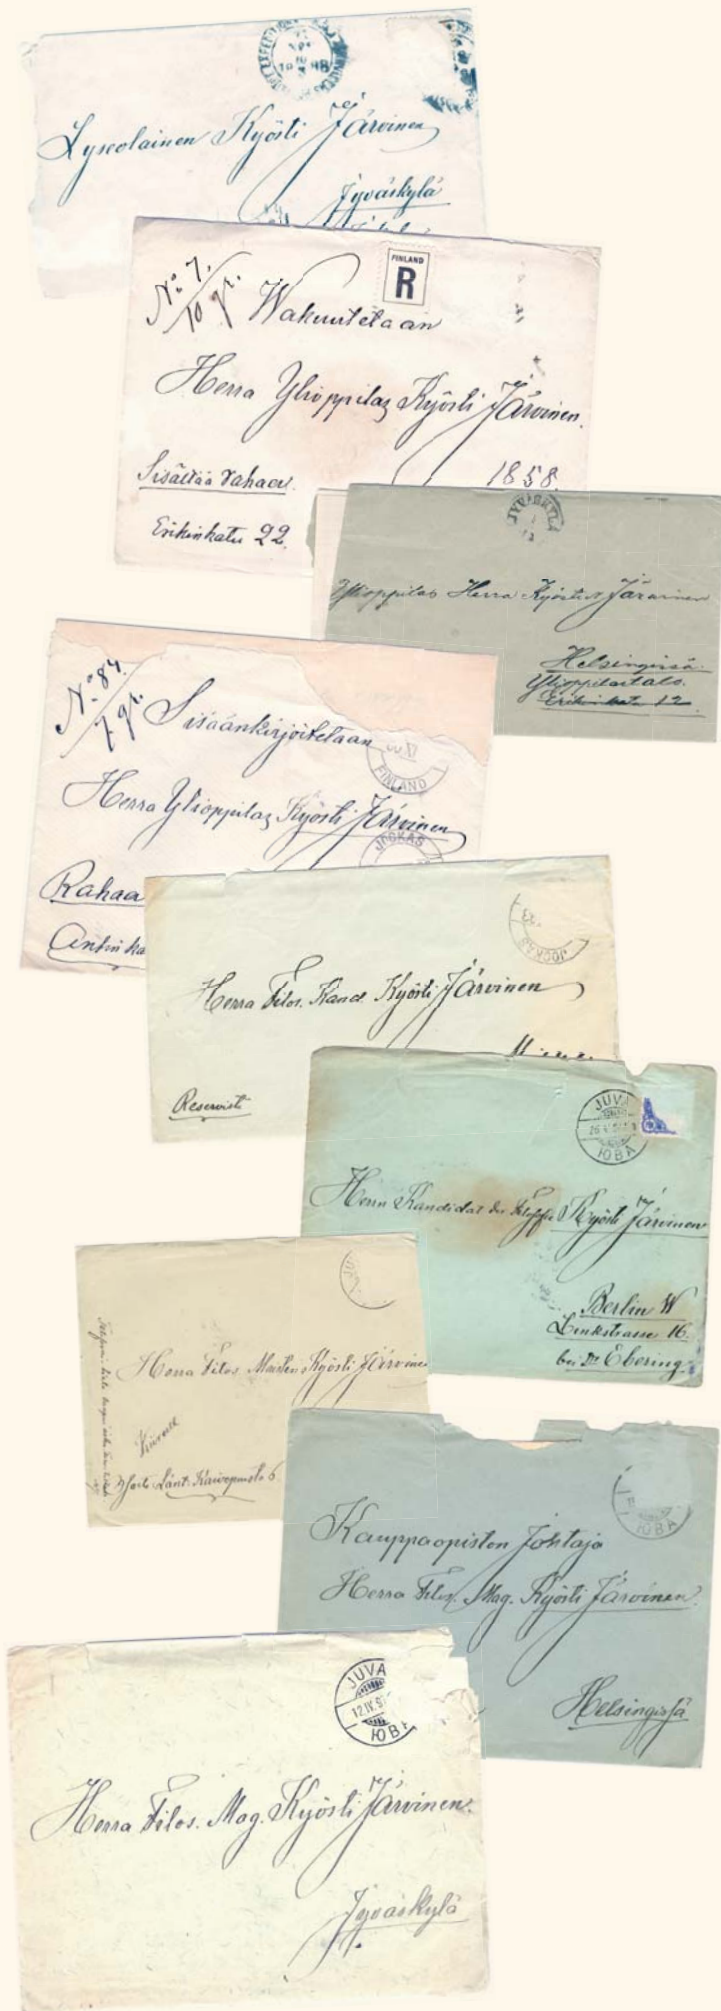 Lyseolainen Kyösti Järvinen
Jyväskylä
No 7.
10 gr.
FINLAND
R
Wakuutetaan
Herra Ylioppilas Kyösti Järvinen.
Sisältää rahaa.
1858
Erikinkatu 22.
JYVÄSKYLÄ
Ylioppilas Herra Kyösti Järvinen
Helsingissä.
Ylioppilastalo.
Erikinkatu 12
No 84.
7 gr.
Sisäänkirjoitetaan
XI
FINLAND
Herra Ylioppilas Kyösti Järvinen
JOCKAS
Rahaa
JOCKAS
Herra Filos. Kand. Kyösti Järvinen
Reservisti
JUVA
ЮВА
Herrn Kandidat der Kyösti Järvinen
Berlin W
Linkstrasse 16.
bei Dr Ebering
Herra Filos. Maisteri Kyösti Järvinen
Länt. Kaivopuisto 6
ЮВА
Kauppaopiston Johtaja
Herra Filos. Mag. Kyösti Järvinen.
Helsingissä
JUVA
12.IV.9
ЮВА
Herra Filos. Mag. Kyösti Järvinen.
Jyväskylä